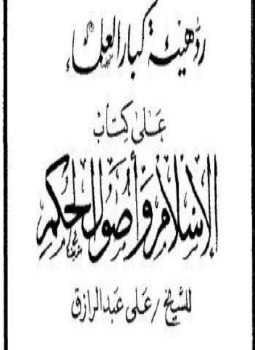 رد هيئة كبار العلماء
على كتاب
الإسلام وأصول الحكم
للشيخ / على عبد الرازق